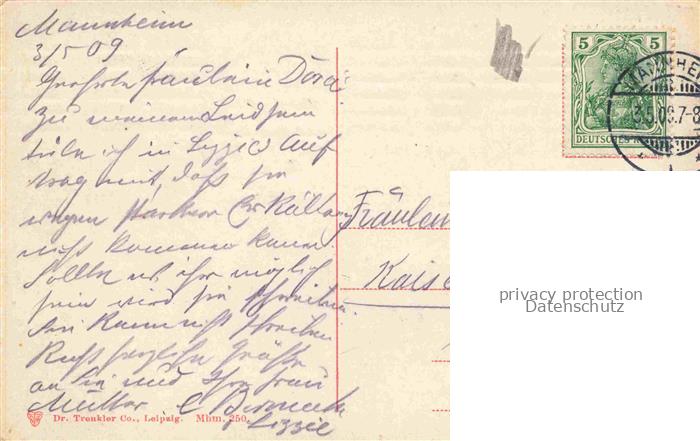 Mannheim
3/5 09
Geehrte Fräulein Dora
zu meinem Leidsein
teile ich in Lizzies Auf
trag mit, daß sie
wegen starker Erkältung
nicht kommen kann.
Sollte es ihr möglich
sein wird sie schreiben.
kann nicht schreiben
Recht herzliche Grüße
an Sie und Ihre Frau
Mutter
Lizzie
Dr. Trenkler Co., Leipzig. Mhm. 250.
5 5
DEUTSCHES
MANNHE
3.5.09.7-8
Fräulein
Kaise
privacy protection
Datenschutz